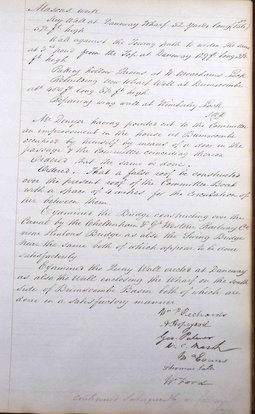 Masons work
Quay Wall at Daneway Wharf 52 Yards long
high
Wall against the Towing path to widen the same
at 3rd pond from the Top at Daneway
high
Puting hollow Quoins at Wiseahams Lock
Protecting Quay Wharf Wall at Brimscombe
long high
Repairing wing wall at Wimberley Lock
Mr Denyer having pointed out to the Committee
an improvement in the house at Brimscombe
occupied by himself by means of a door in the
passage & the Committee considering thereon
Ordered that the same be done.
Ordered. That a false roof be constructed
over the present roof of the Committee Boat
with a space of 4 inches for the circulation of
air between them.
Examined the Bridge constructing over the
Canal by the Cheltenham & Gt Western Railway Co
near Bridge as also the Skew Bridge
near the same both of which appear to be done
satisfactorily
Examined the Quay Wall erected at Daneway
as also the Wall enclosing the Wharf on the south
side of Brimscombe Basin both of which are
done in a satisfactory manner
Wm Richards
Geo.
W. C. Marsh
Thomas
W Ford